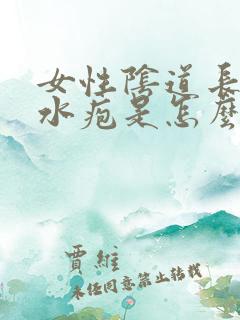 女性陰道長
水疱是怎麼
賈維
未任同意禁止转载